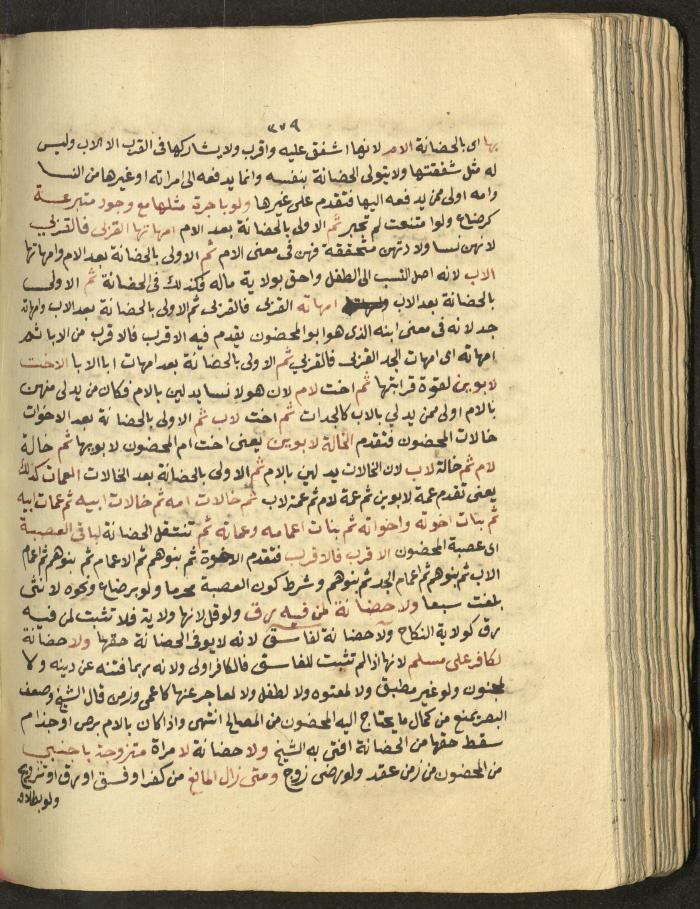 ٣٧٩
بها اى بالحضانة الام لانها اشفق عليه واقرب ولا يشاركها فى القرب الا الاب وليس
له مثل شفقتها ولا يتولى الحضانة بنفسه وانما يدفعه الى امراته او غيرها من النسا
وامه اولى ممن يدفعه اليها فتقدم على غيرها ولو باجرة مثلها مع وجود متبرعة
كرضاع ولو امتنعت لم تجبر ثم الاولى بالحضانة بعد الام امهاتها القربى فالقربى
لانهن نسا ولادتهن متحققة فهن فى معنى الام ثم الاولى بالحضانة بعد الام وامهاتها
الاب لانه اصل النسب الى الطفل واحق بولاية ماله فكذلك فى الحضانة ثم الاولى
بالحضانة بعد الاب امهاته القربى فالقربى ثم الاولى بالحضانة بعد الاب وامهاته
جد لانه فى معنى ابنه الذى هو ابو المحضون يقدم فيه الاقرب فالاقرب من الابا ثم
امهاته اى امهات الجد القربى فالقربى ثم الاولى بالحضانة بعد امهات ابا الابا الاخت
لابوين لقوة قرابتها ثم اخت لام لان هولا نسا يدلين بالام فكان من يدلى منهن
بالام اولى ممن يدلي بالاب كالجدات ثم اخت لاب ثم الاولى بالحضانة بعد الاخوات
خالات المحضون فتقدم الخالة لابوين يعنى اخت ام المحضون لابويها ثم خالة
لام ثم خالة لاب لان الخالات يدلين بالام ثم الاولى بالحضانة بعد الخالات العمات كذلك
يعنى تقدم عمة لابوين ثم عمة لام ثم عمة لاب ثم خالات امه ثم خالات ابيه ثم عمات ابيه
ثم بنات اخوته واخواته ثم بنات اعمامه وعماته ثم تنتقل الحضانة لباقى العصبة
اى عصبة المحضون الاقرب فالاقرب فتقدم الاخوة ثم بنوهم ثم الاعمام ثم بنوهم ثم اعمام
الاب ثم بنوهم ثم اعمام الجد ثم بنوهم وشرط كون العصبة محرما ولو برضاع ونحوه لانثى
بلغت سبعا ولا حضانة لمن فيه رق ولو قل لانها ولاية فلا تثبت لمن فيه
رق كولاية النكاح ولا حضانة لفاسق لانه لا يوفى الحضانة حقها ولا حضانة
لكافر على مسلم لانها اذا لم تثبت للفاسق فالكافر اولى ولانه ربما فتنه عن دينه ولا
لمجنون ولو غير مطبق ولا لمعتوه ولا لطفل ولا لعاجر عنها كاعمى وزمن قال الشيخ وضعف
البصر يمنع من كمال ما يحتاج اليه المحضون من المصالح انتهى واذا كان بالام برص او جذام
سقط حقها من الحضانة افتى به الشيخ ولا حضانة لامراة متزوجة باجنبي
من المحضون من زمن عقد ولو رضى زوج ومتى زال المانع من كفر او فسق او رق او تزويج
ولو بطلاق